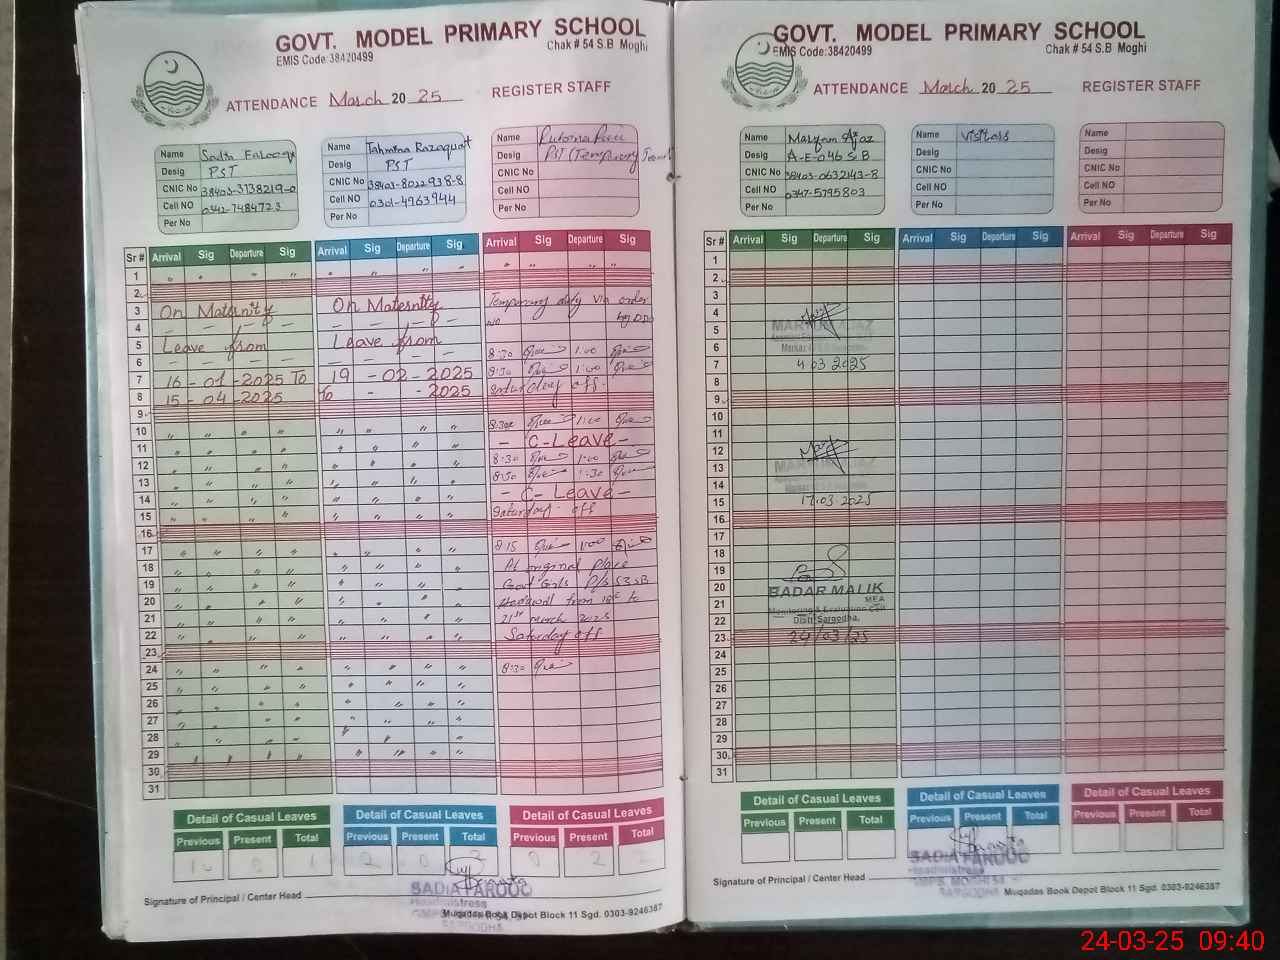 GOVT. MODEL PRIMARY SCHOOL
EMIS Code:38420499
Chak # 54 S.B Moghi
ATTENDANCE March 20 25 REGISTER STAFF
Name Sadia Farooq
Desig PST
CNIC No 38403-3138219-0
Cell NO 0342-7484723
Per No
Name Tahmina Razaqat
Desig PST
CNIC No 38403-8022938-8
Cell NO 0301-4963944
Per No
Name
Desig PST (Temporary
CNIC No
Cell NO
Per No
Sr # Arrival Sig Departure Sig Arrival Sig Departure Sig Arrival Sig Departure Sig
1 " " " " " " " " " " " "
2
3 On Maternity On Maternity Temporary duty via order
4 - - - - - - - - NO by DDO
5 Leave from Leave from
6 - - - - - - - - 8:30 1:00
7 16 - 01 - 2025 To 19 - 02 - 2025 8:30 1:00
8 15 - 04 - 2025 To - - 2025 Saturday off.
9
10 " " " " " " " " 8:30 1:00
11 " " " " " " " " - C-Leave -
12 " " " " " " " " 8:30 1:00
13 " " " " " " " " 8:30 1:30
14 " " " " " " " " - C-Leave -
15 " " " " " " " " Saturday off
16
17 " " " " " " " " 8:15 1:00
18 " " " " " " " " At original place
19 " " " " " " " " Govt Girls P/S 53 SB
20 " " " " " " " " from 18th to
21 " " " " " " " " 21st March 2025
22 " " " " " " " " Saturday off
23
24 " " " " " " " " 8:30
25 " " " " " " " "
26 " " " " " " " "
27 " " " " " " " "
28 " " " " " " " "
29 " " " " " " " "
30
31
Detail of Casual Leaves Detail of Casual Leaves Detail of Casual Leaves
Previous Present Total Previous Present Total Previous Present Total
10 0 2 0 2 0 2 2
Signature of Principal / Center Head
SADIA FAROOQ
Headmistress
SARGODHA
Muqadas Book Depot Block 11 Sgd. 0303-9246387
GOVT. MODEL PRIMARY SCHOOL
EMIS Code:38420499
Chak # 54 S.B Moghi
ATTENDANCE March 20 25 REGISTER STAFF
Name Maryam Ajaz
Desig A-E-O 46 S B
CNIC No 38403-0632143-8
Cell NO 0347-5795803
Per No
Name Visitors
Desig
CNIC No
Cell NO
Per No
Name
Desig
CNIC No
Cell NO
Per No
Sr # Arrival Sig Departure Sig Arrival Sig Departure Sig Arrival Sig Departure Sig
1
2
3
4
5 MARYAM AJAZ
6
7 4 03 2025
8
9
10
11
12
13 MARYAM AJAZ
14
15 17.03.2025
16
17
18
19
20 BADAR MALIK
MEA
21 Monitoring & Evaluation
22 Distt. Sargodha.
23 24/03/25
24
25
26
27
28
29
30
31
Detail of Casual Leaves Detail of Casual Leaves Detail of Casual Leaves
Previous Present Total Previous Present Total Previous Present Total
Signature of Principal / Center Head
SADIA FAROOQ
Headmistress
GMPS. MOGHI 54
SARGODHA
Muqadas Book Depot Block 11 Sgd. 0303-9246387
24-03-25 09:40